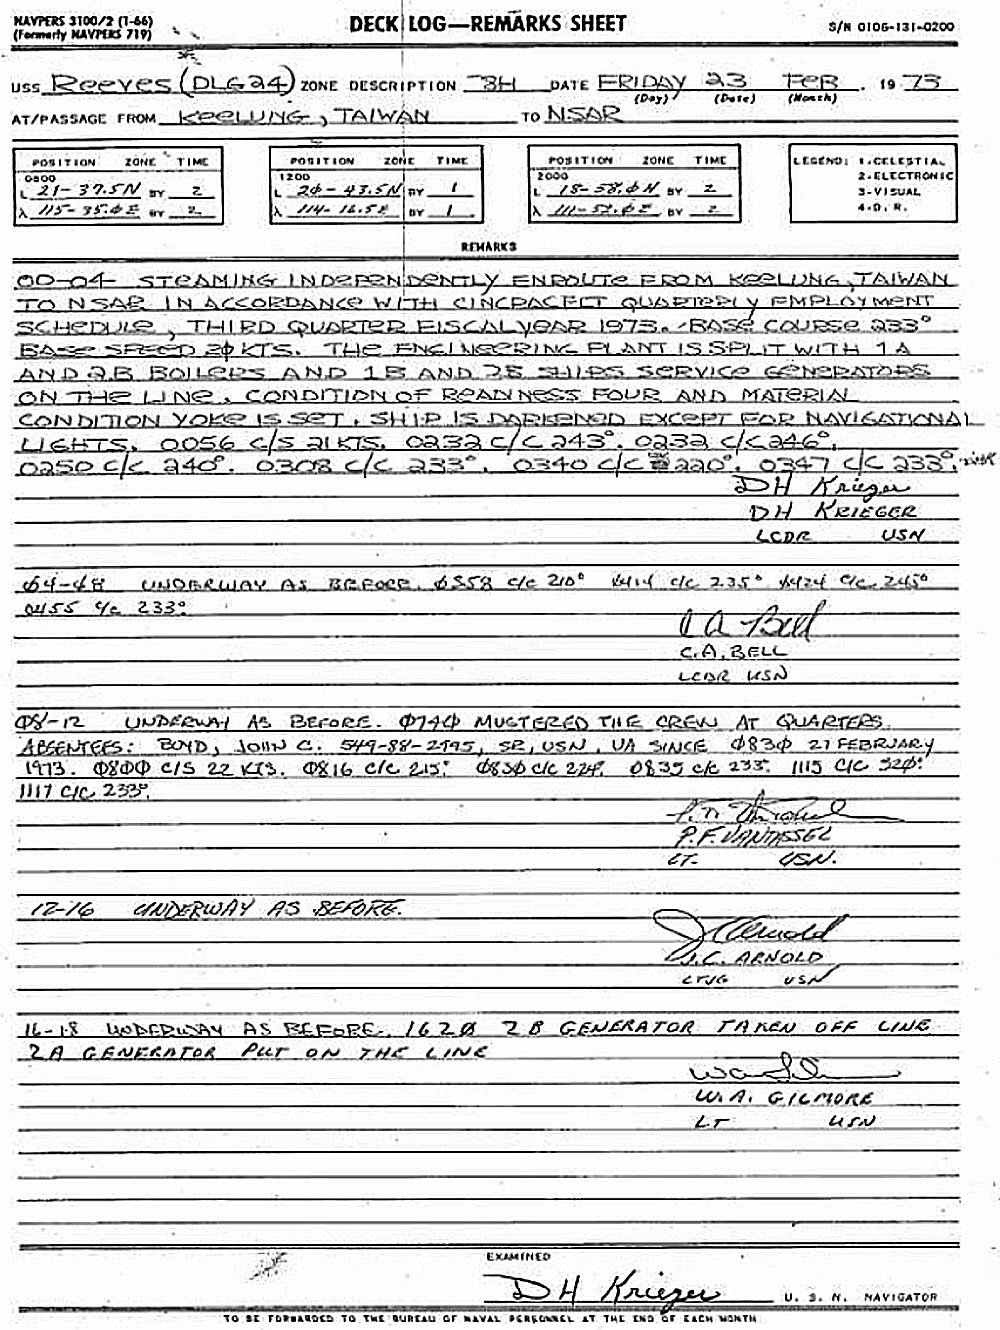 NAVPERS 3100/2 (1-66)
(Formerly NAVPERS 719)
DECK LOG—REMARKS SHEET
S/N 0106-131-0200
USS Reeves (DLG24) ZONE DESCRIPTION -8H DATE FRIDAY 23 FEB . 19 73
(Day) (Date) (Month)
AT/PASSAGE FROM KEELUNG, TAIWAN TO NSAR
POSITION ZONE TIME
0800
L 21-37.5N BY 2
λ 115-35.0E BY 2
POSITION ZONE TIME
1200
L 20-43.5N BY 1
λ 114-16.5E BY 1
POSITION ZONE TIME
2000
L 18-58.0N BY 2
λ 111-52.0E BY 2
LEGEND: 1-CELESTIAL
2-ELECTRONIC
3-VISUAL
4-D.R.
REMARKS
00-04 STEAMING INDEPENDENTLY ENROUTE FROM KEELUNG, TAIWAN
TO NSAR IN ACCORDANCE WITH CINCPACFLT QUARTERLY EMPLOYMENT
SCHEDULE, THIRD QUARTER FISCAL YEAR 1973. BASE COURSE 233°
BASE SPEED 20 KTS. THE ENGINEERING PLANT IS SPLIT WITH 1A
AND 2B BOILERS AND 1B AND 2B SHIPS SERVICE GENERATORS
ON THE LINE. CONDITION OF READINESS FOUR AND MATERIAL
CONDITION YOKE IS SET. SHIP IS DARKENED EXCEPT FOR NAVIGATIONAL
LIGHTS. 0056 C/S 21 KTS. 0232 C/C 243°. 0232 C/C 246°.
0250 C/C 240°. 0308 C/C 233°. 0340 C/C 220°. 0347 C/C 233°.
DH Krieger
DH KRIEGER
LCDR USN
04-08 UNDERWAY AS BEFORE. 0358 C/C 210° 0414 C/C 235° 0424 C/C 245°
0455 C/C 233°
C A Bell
C.A. BELL
LCDR USN
08-12 UNDERWAY AS BEFORE. 0740 MUSTERED THE CREW AT QUARTERS.
ABSENTEES: BOYD, JOHN C. 549-88-2795, SR, USN, UA SINCE 0830 21 FEBRUARY
1973. 0800 C/S 22 KTS. 0816 C/C 215°. 0830 C/C 224°. 0835 C/C 233°. 1115 C/C 320°.
1117 C/C 233°.
P.F. VANTASSEL
LT. USN.
12-16 UNDERWAY AS BEFORE.
J C Arnold
J.C. ARNOLD
LTJG USN
16-18 UNDERWAY AS BEFORE. 1620 2B GENERATOR TAKEN OFF LINE
2A GENERATOR PUT ON THE LINE
W.A. GILMORE
LT USN
EXAMINED
DH Krieger U. S. N. NAVIGATOR
TO BE FORWARDED TO THE BUREAU OF NAVAL PERSONNEL AT THE END OF EACH MONTH